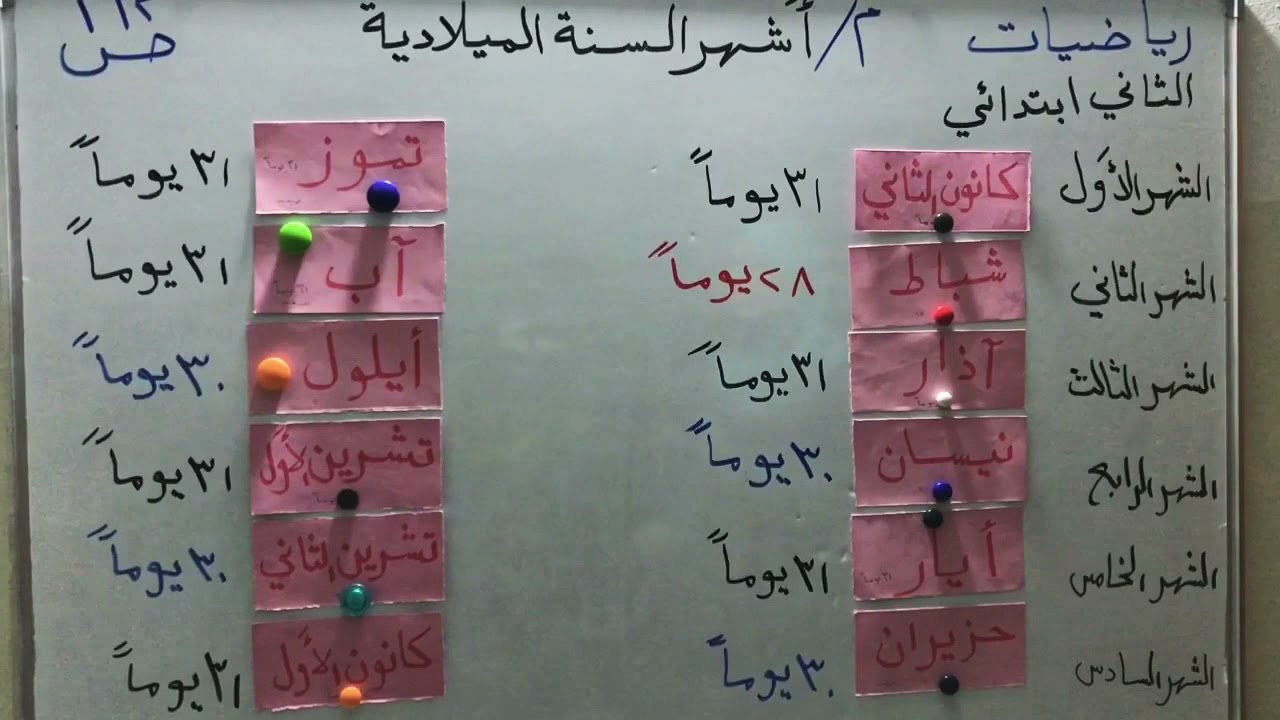 رياضيات م/ أشهر السنة الميلادية ص ١١٢
الثاني ابتدائي
الشهر الأول كانون الثاني ٣١ يوماً
الشهر الثاني شباط ٢٨ يوماً
الشهر الثالث آذار ٣١ يوماً
الشهر الرابع نيسان ٣٠ يوماً
الشهر الخامس أيار ٣١ يوماً
الشهر السادس حزيران ٣٠ يوماً
تموز ٣١ يوماً
آب ٣١ يوماً
أيلول ٣٠ يوماً
تشرين الأول ٣١ يوماً
تشرين الثاني ٣٠ يوماً
كانون الأول ٣١ يوماً